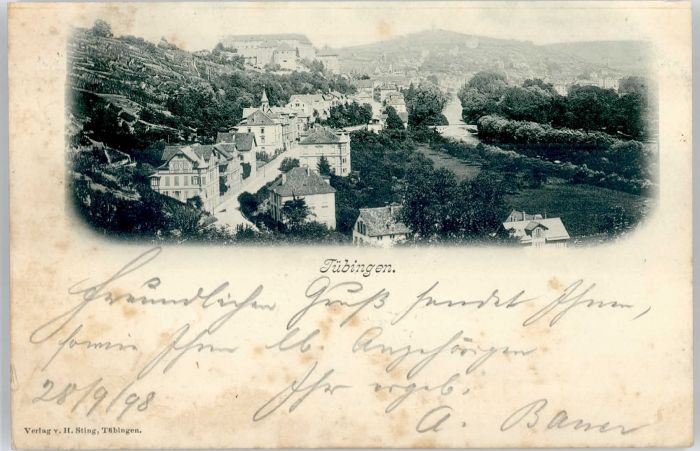 Tübingen.
Freundlichen Gruß sendet Ihnen,
sowie Ihren lb. Angehörigen
28/9/98 Ihr ergeb.
A. Bauer
Verlag v. H. Sting, Tübingen.